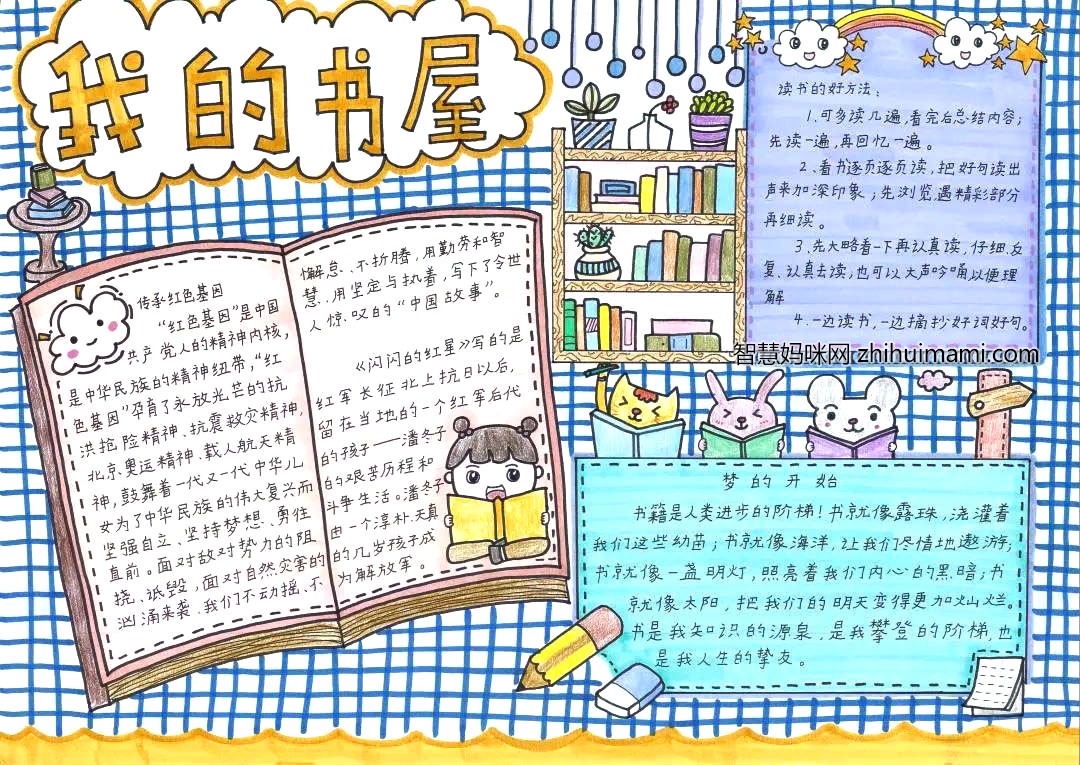 我的书屋
传承红色基因
“红色基因”是中国
共产党人的精神内核,
是中华民族的精神纽带,“红
色基因”孕育了永放光芒的抗
洪抢险精神、抗震救灾精神,
北京奥运精神、载人航天精
神,鼓舞着一代又一代中华儿
女为了中华民族的伟大复兴而
坚强自立、坚持梦想、勇往
直前。面对敌对势力的阻
挠、诋毁,面对自然灾害的
汹涌来袭、我们不动摇、不
懈怠、不折腾,用勤劳和智
慧、用坚定与执着,写下了令世
人惊叹的“中国故事”。
《闪闪的红星》写的是
红军长征北上抗日以后,
留在当地的一个红军后代
的孩子——潘冬子
的艰苦历程和
斗争生活。潘冬子
由一个淳朴、天真
的几岁孩子成
为解放军。
读书的好方法:
1.可多读几遍,看完后总结内容;
先读一遍,再回忆一遍。
2.看书逐页逐页读,把好句读出
声来加深印象;先浏览,遇精彩部分
再细读。
3.先大略看一下再认真读,仔细、反
复、认真去读;也可以大声吟诵以便理
解
4.一边读书,一边摘抄好词好句。
智慧妈咪网 zhihuimami.com
梦的开始
书籍是人类进步的阶梯!书就像露珠,浇灌着
我们这些幼苗;书就像海洋,让我们尽情地遨游;
书就像一盏明灯,照亮着我们内心的黑暗;书
就像太阳,把我们的明天变得更加灿烂。
书是我知识的源泉,是我攀登的阶梯,也
是我人生的挚友。